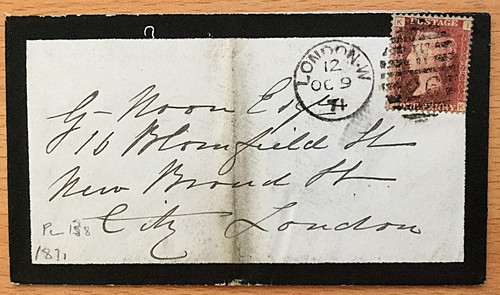 K POSTAGE I
LONDON·W
12
OC 9
71
G Noon Esqre
16 Blomfield St
New Broad St
City London
PL 138
1871